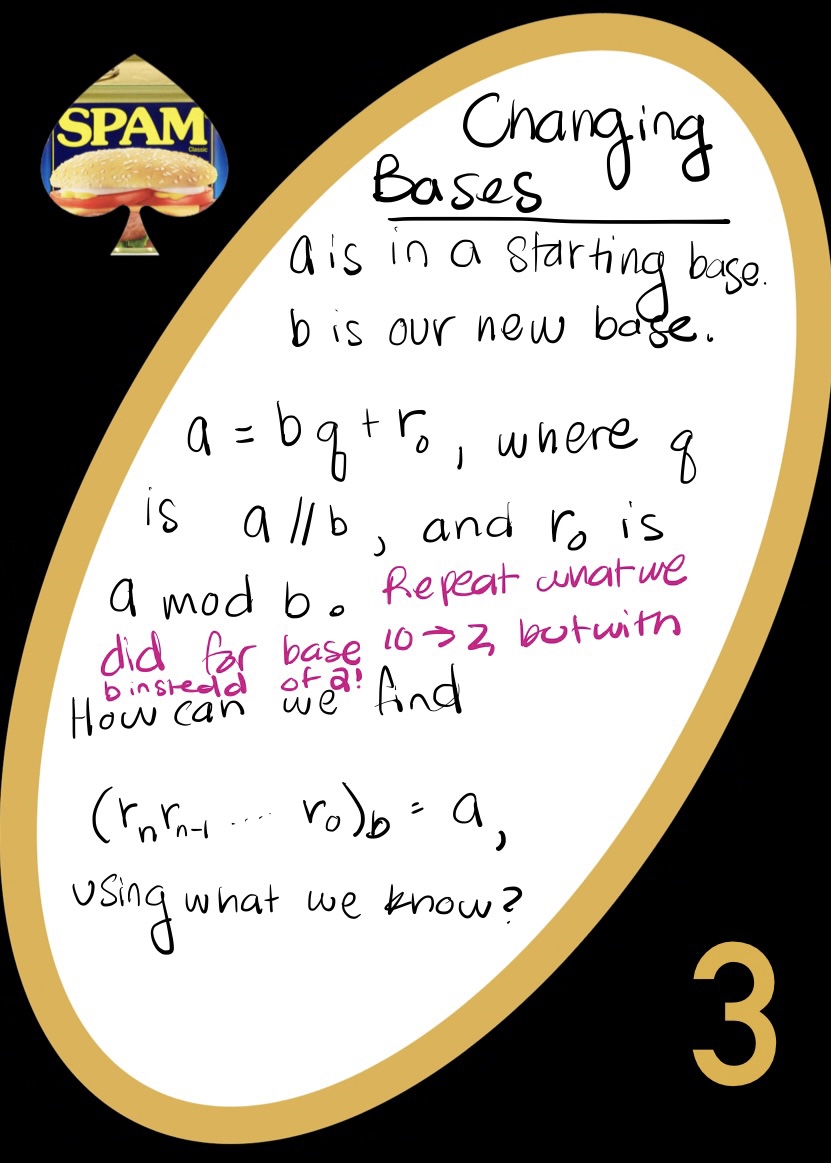 SPAM
Classic
Changing
Bases
a is in a starting base.
b is our new base.
a = bq + r₀, where q
is a // b, and r₀ is
a mod b. Repeat what we
did for base 10 → 2, but with
b instead of 2!
How can we find
(rₙrₙ₋₁ .... r₀)b = a,
using what we know?
3